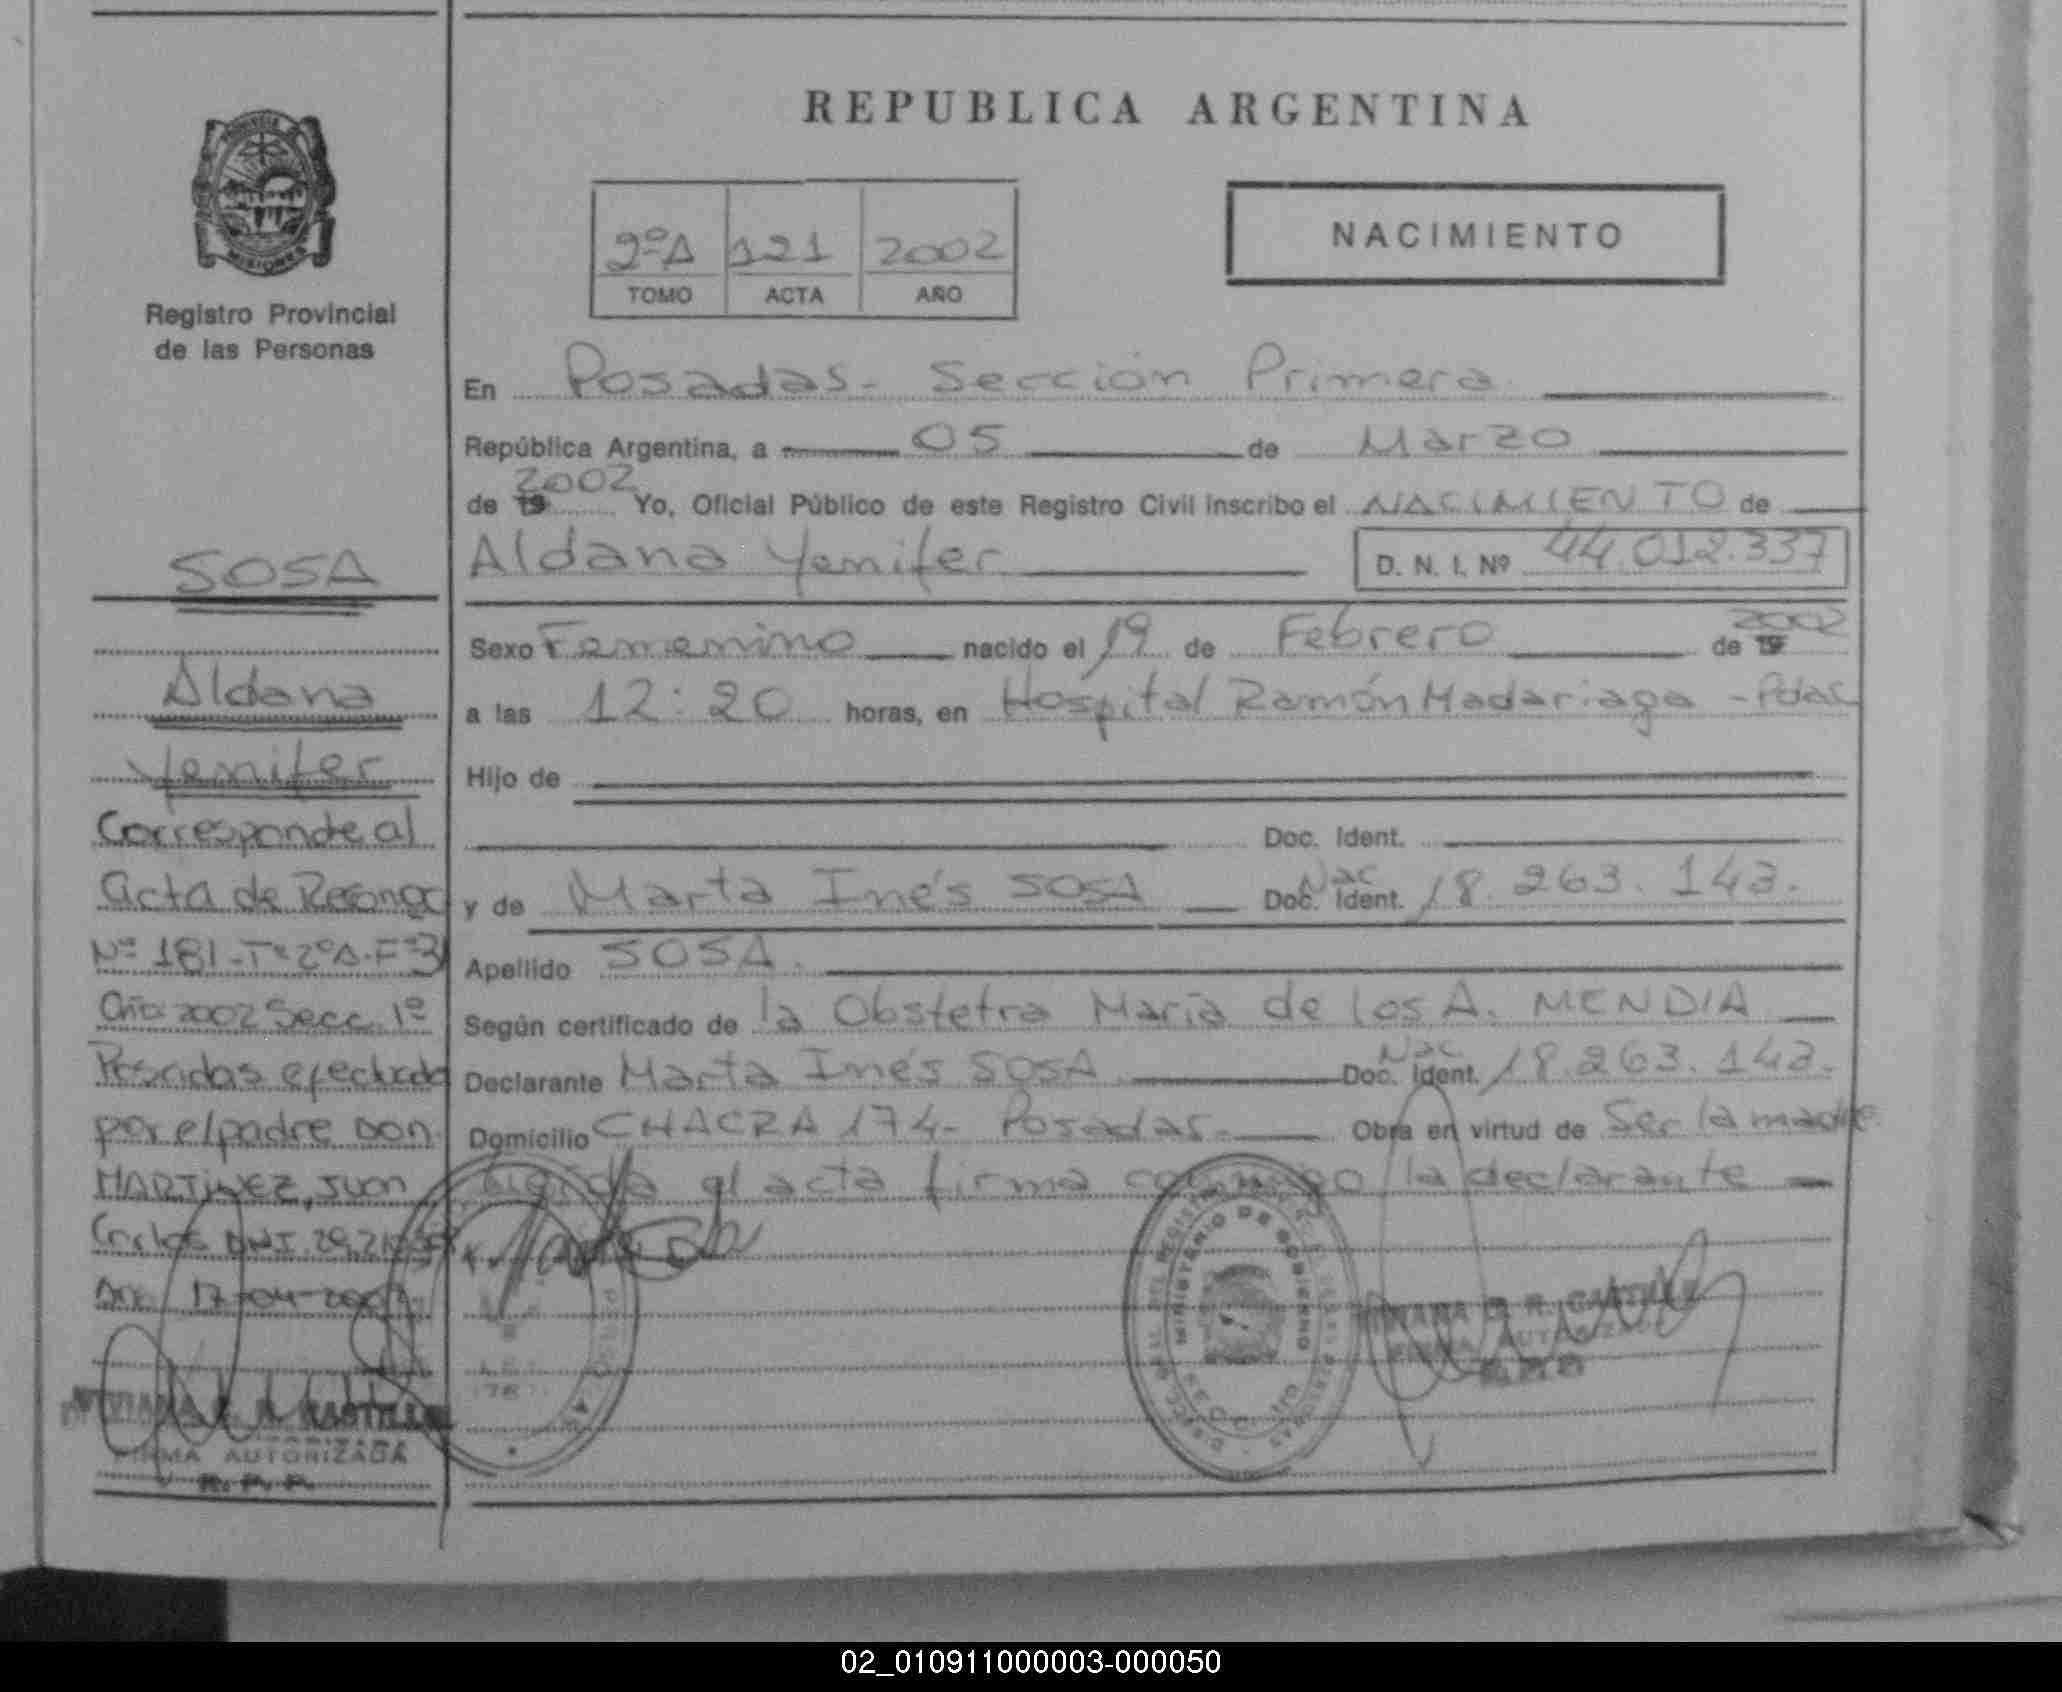 REPUBLICA ARGENTINA
PROVINCIA DE
MISIONES
Registro Provincial
de las Personas
2ºA 121 2002
TOMO ACTA AÑO
NACIMIENTO
En Posadas- Sección Primera
República Argentina, a 05 de Marzo
de 19 2002 Yo, Oficial Público de este Registro Civil inscribo el NACIMIENTO de
Aldana Yemifer D. N. I. Nº 44.012.337
Sexo Femenino nacido el 19 de Febrero de 19 2002
a las 12:20 horas, en Hospital Ramón Madariaga - Pdas
Hijo de
Doc. Ident.
y de Marta Inés SOSA Nac Doc. Ident. 18.263.143.
Apellido SOSA.
Según certificado de la Obstetra María de los A. MENDIA
Declarante Marta Inés SOSA Nac Doc. Ident. 18.263.143.
Domicilio CHACRA 174- Posadas- Obra en virtud de Ser la madre
Leída el acta firma conmigo la declarante
SOSA
Aldana
Yemifer
Corresponde al
acta de Reconoc
Nº 181-Tº2ºA-Fº31
Año:2002 Secc. 1º
Posadas efectuado
por el padre Don
MARTINEZ, Juan
Carlos DNI
17-04-2002
FIRMA AUTORIZADA
R. P. P.
MINISTERIO DE GOBIERNO
CASTILLO
FIRMA AUTORIZADA
R.P.P.
02_010911000003-000050